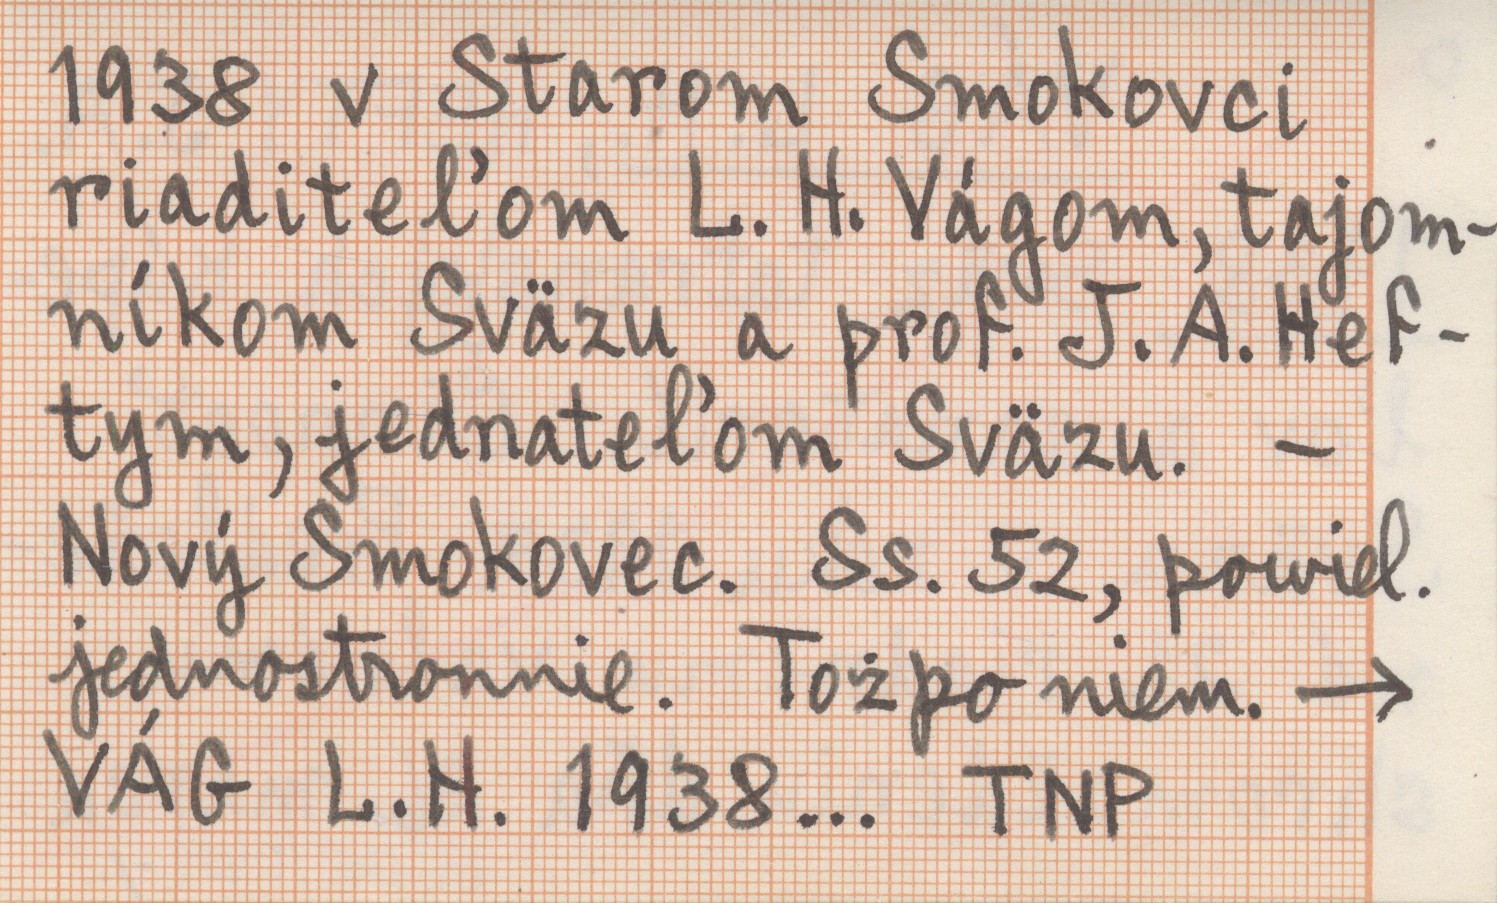 1938 v Starom Smokovci
riaditeľom L. H. Vágom, tajom-
níkom Sväzu a prof. J. A. Hef-
tym, jednateľom Sväzu. –
Nový Smokovec. Ss. 52, powiel.
jednostronnie. Toż po niem. →
VÁG L.H. 1938... TNP